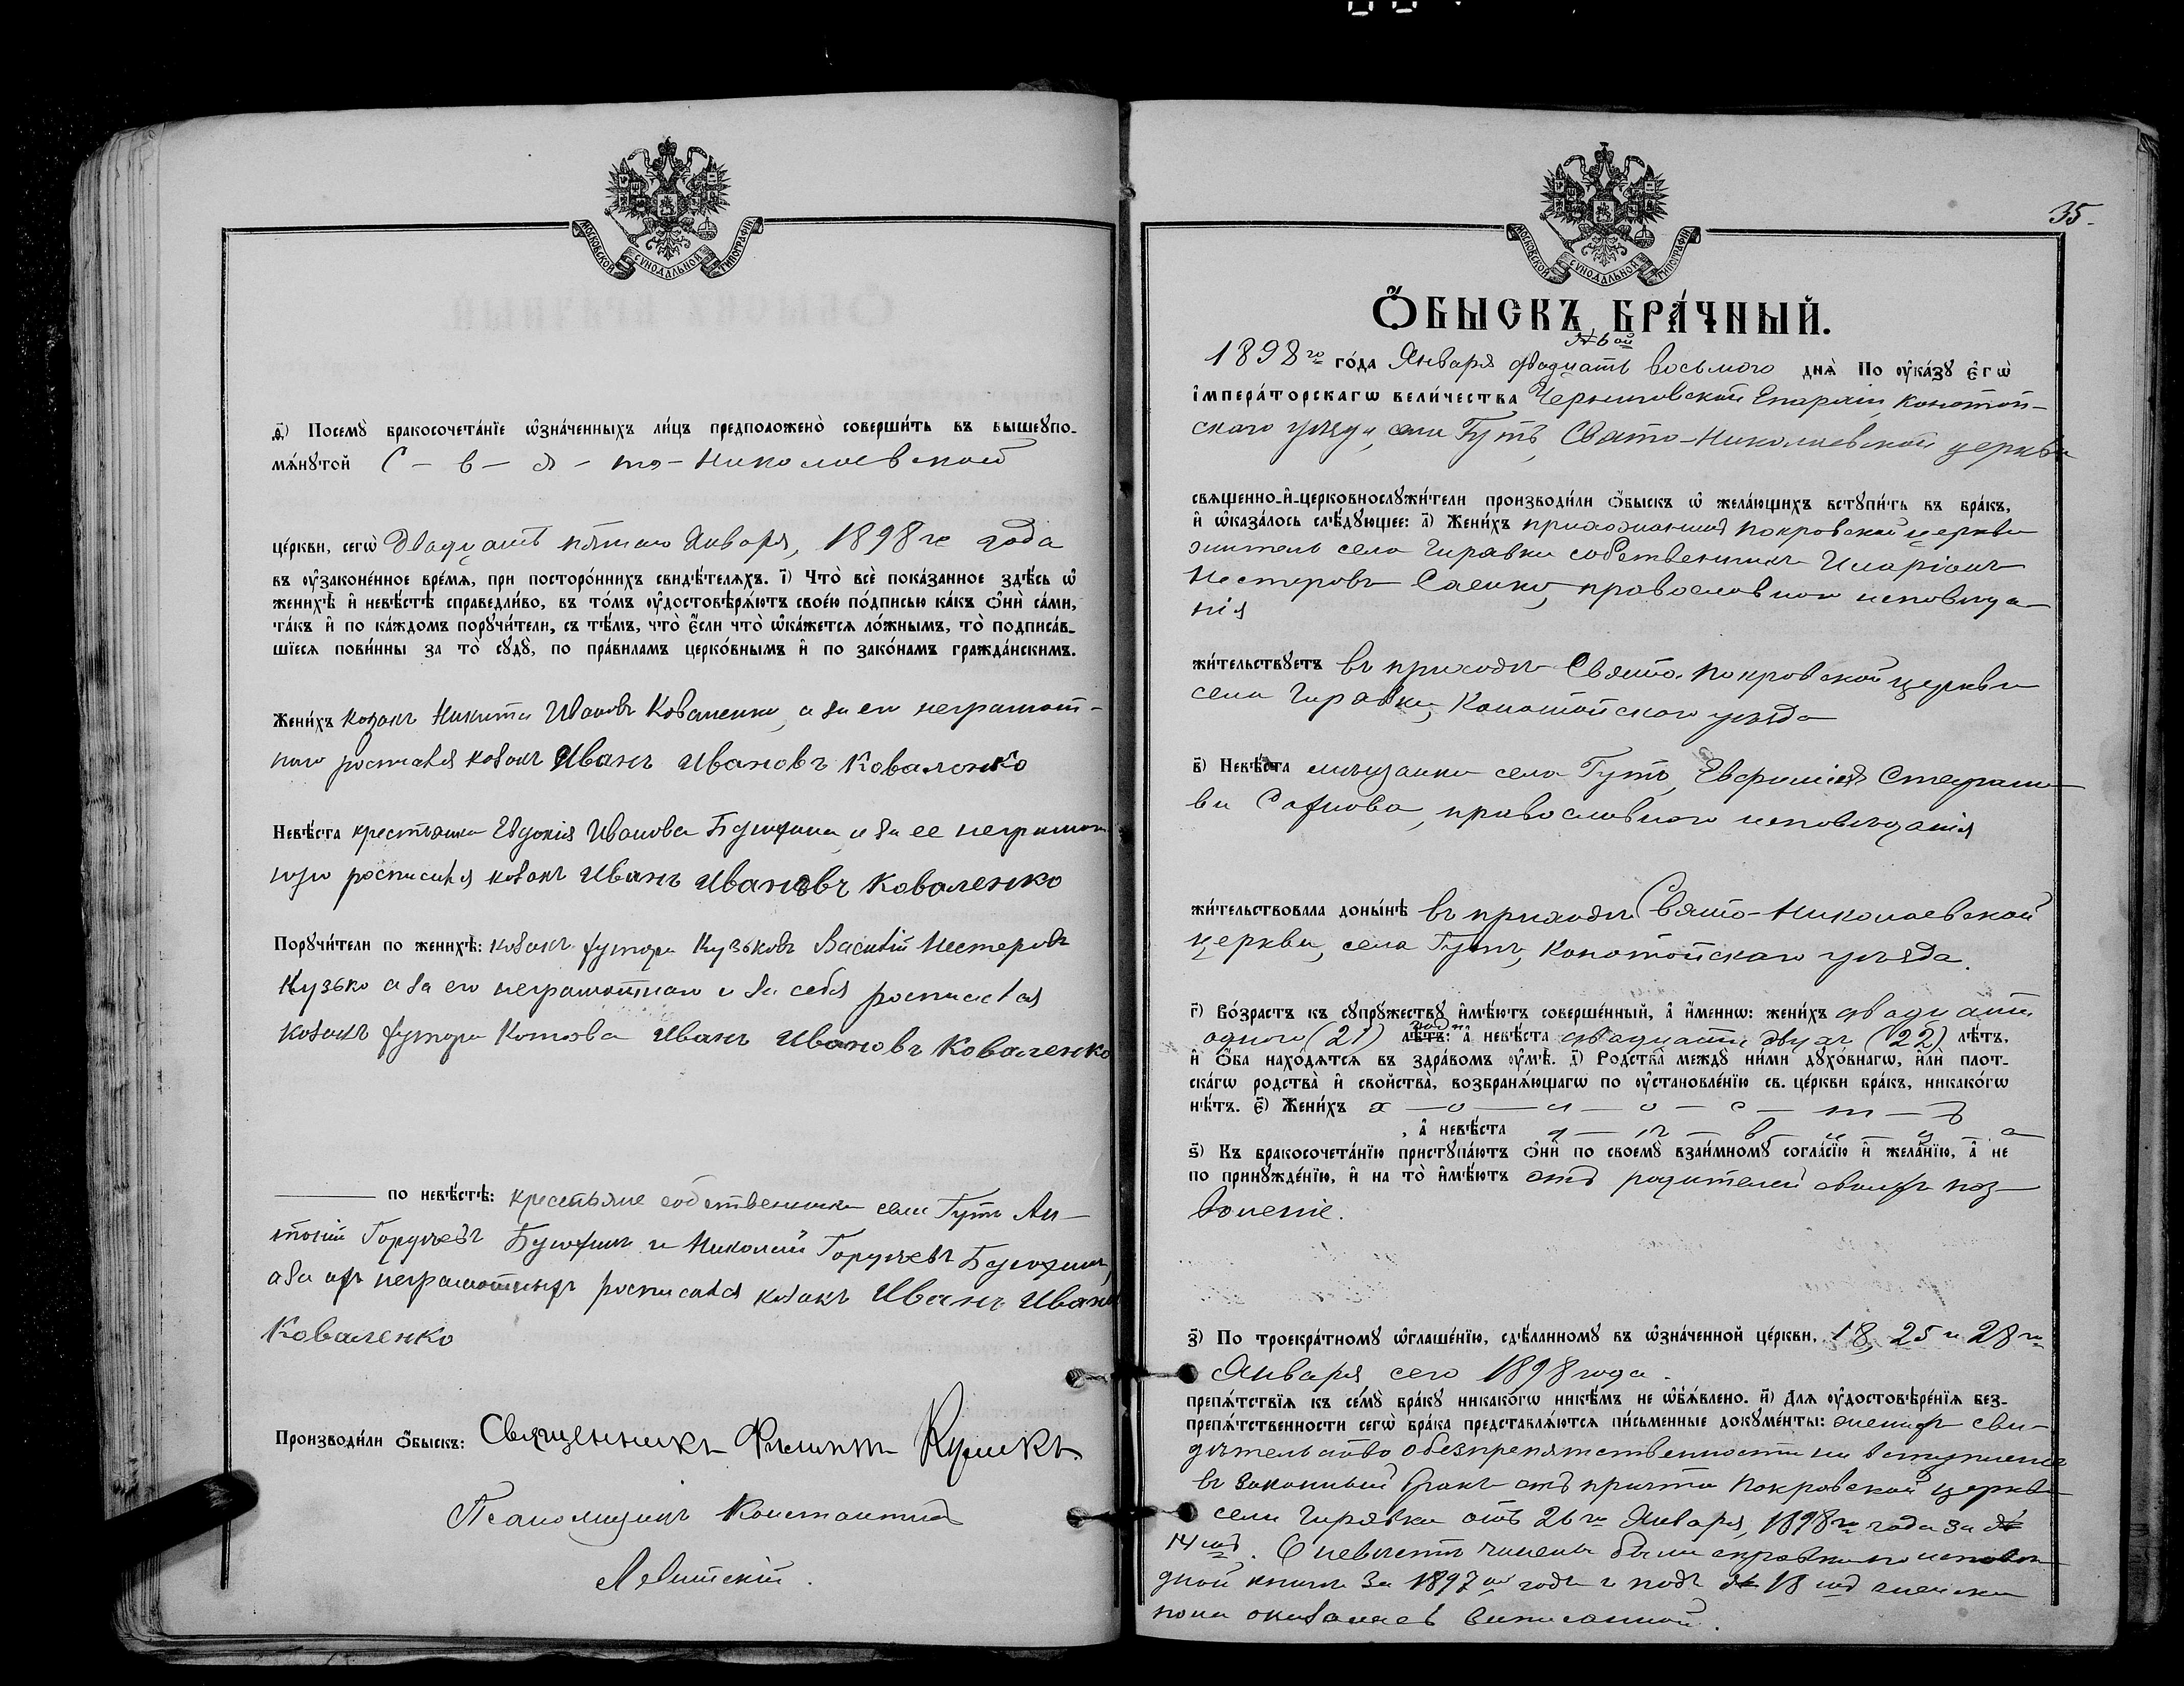 МОСКОВСКОЙ СѴНОДАЛЬНОЙ ТИПОГРАФІИ
ѳ҃) Посемꙋ̀ бракосочета́нїе ѡ҆зна́ченныхъ ли́цъ предположено̀ соверши́ть въ вышеꙋпо-
мѧ́нꙋтой С-в-я-то-Николаевской
це́ркви, сегѡ̀ двадцать пятаго Января, 1898 го года
въ ᲂу҆зако́нённое вре́мѧ, при посторо́ннихъ свидѣ́телѧхъ. і҃) Что̀ всѐ пока́занное здѣ́сь ѡ҆
женихѣ̀ и҆ невѣ́стѣ справедли́во, въ то́мъ ᲂу҆достовѣрѧ́ютъ свое́ю по́дписью ка́къ ѻ҆нѝ са́ми,
та́къ и҆ по ка́ждомъ порꙋчи́тели, съ тѣ́мъ, что̀ є҆́сли что̀ ѡ҆ка́жетсѧ ло́жнымъ, то̀ подписа́в-
шїесѧ пови́нны за то̀ сꙋдꙋ̀, по пра́виламъ церко́внымъ и҆ по зако́намъ гражда́нскимъ.
Жени́хъ козакъ Никита Ивановъ Коваленко, а за его неграмот-
наго росписался козакъ Иванъ Ивановъ Коваленко
Невѣ́ста крестьянка Евдокія Иванова а за ее неграмот
ную росписался козакъ Иванъ Ивановъ Коваленко
Порꙋчи́тели по женихѣ̀: козакъ хутора Кузьковъ Василій Нестеровъ
Кузько а за его неграмотнаго и за себя росписался
козакъ хутора Иванъ Ивановъ Коваленко
по невѣ́стѣ: крестьяне собственники села Гутъ Ан-
тоній Гордѣевъ и Николай Гордѣевъ
а за ихъ неграмотныхъ росписался козакъ Иванъ Иванов
Коваленко
Производи́ли ѻ҆́быскъ: Священникъ Филиппъ
Псаломщикъ Константинъ
Левитскій.
35.
МОСКОВСКОЙ СѴНОДАЛЬНОЙ ТИПОГРАФІИ
Ѻ҆́БЫСКЪ БРА́ЧНЫЙ.
№ 6 ой
1898 го го́да Января двадцать восьмого днѧ̀ По ᲂу҆ка́зꙋ є҆гѡ̀
і҆мпера́торскагѡ вели́чества Черниговской Епархіи, Конотоп-
скаго уѣзда, села Гутъ, Свято-Николаевской церкви
священно-и҆-церковнослꙋжи́тели производи́ли ѻ҆́быскъ ѡ҆ жела́ющихъ встꙋпи́ть въ бра́къ,
и҆ ѡ҆каза́лось слѣ́дꙋющее: а҃) Жени́хъ прихожанинъ Покровской церкви
житель села Гирявки собственникъ Иларіонъ
Нестеровъ Саенко, православного исповѣда-
нія
жи́тельствꙋетъ въ приходѣ Свято-Покровской церкви
села Гирявки, Конотопского уѣзда
в҃) Невѣ́ста мѣщанка села Гутъ, Евфимія Стефано-
ва православного исповѣданія
жи́тельствовала доны́нѣ въ приходѣ Свято-Николаевской
церкви, села Гутъ, Конотопскаго уѣзда.
г҃) Во́зрастъ къ сꙋпрꙋ́жествꙋ и҆мѣ́ютъ соверше́нный, а҆ и҆́меннѡ: жени́хъ двадцати
одного (21) лѣ́тъ: а҆ невѣ́ста двадцати двухъ (22) лѣ́тъ,
и҆ ѻ҆́ба нахо́дѧтсѧ въ здра́вомъ ᲂу҆мѣ̀. д҃) Родства̀ междꙋ̀ ни́ми дꙋхо́внагѡ, и҆лѝ плот-
ска́гѡ родства̀ и҆ свойства̀, возбранѧ́ющагѡ по ᲂу҆становле́нїю св. це́ркви бра́къ, никако́гѡ
нѣ́тъ. є҃) Жени́хъ х - о - л - о - с - т - ъ
, а҆ невѣ́ста д - ѣ - в - и - ц - а
ѕ҃) Къ бракосочета́нїю пристꙋпа́ютъ ѻ҆нѝ по своемꙋ̀ взаи́мномꙋ согла́сїю и҆ жела́нїю, а҆ не
по принꙋжде́нїю, и҆ на то̀ и҆мѣ́ютъ отъ родителей своихъ поз-
воленіе.
з҃) По троекра́тномꙋ ѡ҆глаше́нїю, сдѣ́ланномꙋ въ ѡ҆зна́ченной це́ркви, 18, 25 и 28 го
Января сего 1898 года.
препѧ́тствїѧ къ се́мꙋ̀ бра́кꙋ никако́гѡ никѣ́мъ не ѡ҆б̾ѧ́влено. и҃) Для ᲂу҆достовѣре́нїѧ без-
препѧ́тственности сегѡ̀ бра́ка представлѧ́ютсѧ пи́сьменные докꙋме́нты: женихъ сви-
дѣтельство о безпрепятственности на вступленіе
въ законный бракъ отъ причта Покровской церкви
села Гирявки отъ 26 го Января, 1898 го года за №
14 мъ. О невѣстѣ чинены были справки по исповѣ-
дной книгѣ за 1897 й годъ и подъ № 18 мъ женска
пола оказалась записанной.